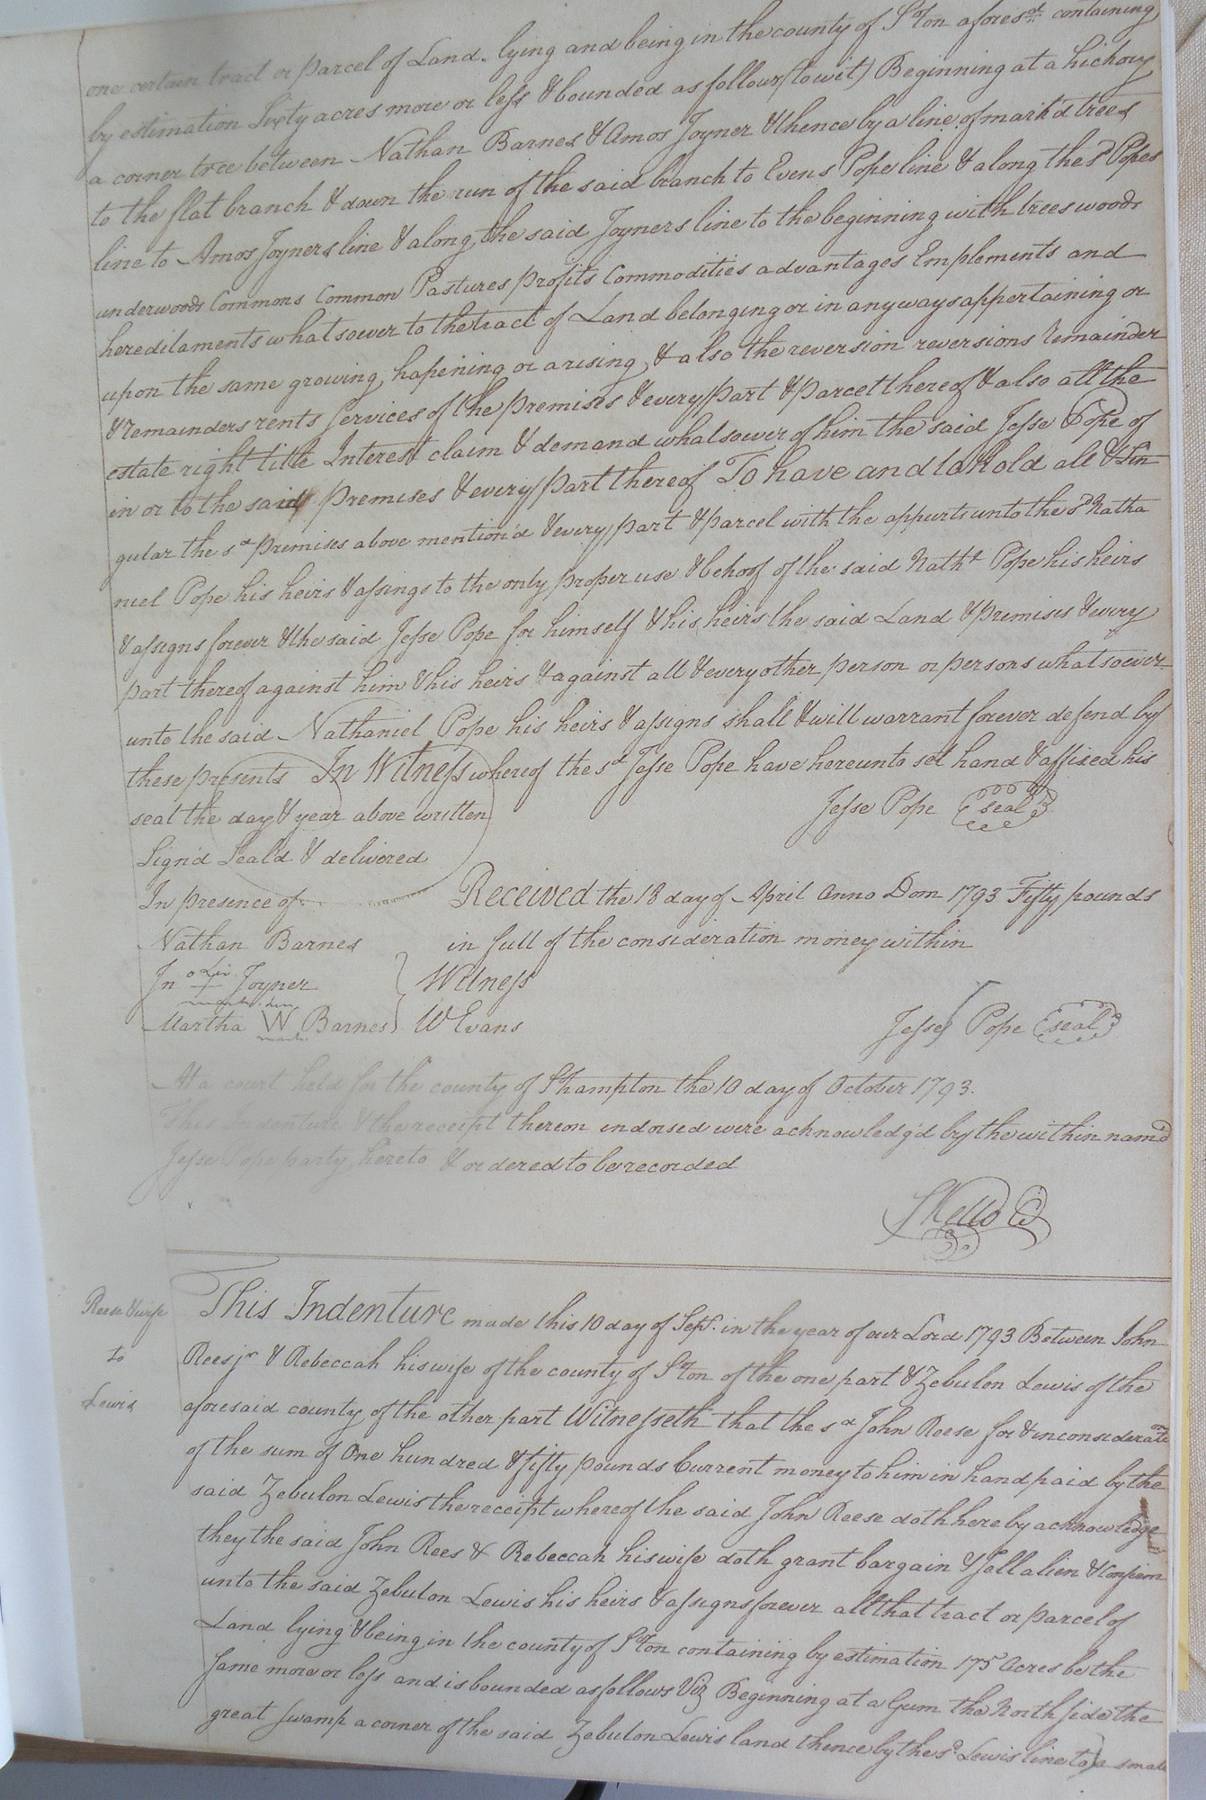 one certain tract or parcel of Land lying and being in the county of S°ton afores.d containing
by estimation Sixty acres more or less & bounded as follows (to wit) Beginning at a hickory
a corner tree between Nathan Barnes & Amos Joyner & thence by a line of mark'd trees
to the flat branch & down the run of the said branch to Evens Pope line & along the sd Popes
line to Amos Joyners line & along the said Joyners line to the beginning with trees woods
underwoods Commons Common Pastures profits Commodities advantages Emplements and
hereditaments whatsoever to the tract of Land belonging or in anyways appertaining or
upon the same growing, hapening or arising, & also the reversion reversions Remainder
& remainders rents services of the premises & every part & parcel thereof & also all the
estate right title Interest claim & demand whatsoever of him the said Jesse Pope of
in or to the said premises & every part thereof To have and to hold all & Sin
gular the sd premises above mention'd & every part & parcel with the appurts unto the sd Natha
niel Pope his heirs & assings to the only proper use & behoof of the said Nathl Pope his heirs
& assigns forever & the said Jesse Pope for himself & his heirs the said Land & premises & every
part thereof against him & his heirs & against all & every other person or persons whatsoever
unto the said Nathaniel Pope his heirs & assigns shall & will warrant forever defend by
these presents In Witness whereof the sd Jesse Pope have hereunto set hand & affixed his
seal the day & year above written
Jesse Pope (seal)
Sign'd Seal'd & delivered
In presence of
Received the 18 day of April Anno Dom 1793 Fifty pounds
in full of the consideration money within
Nathan Barnes
Jno + Joyner
Martha W Barnes
mark
Witness
W Evans
Jesse Pope (seal)
At a court held for the county of S°hampton the 10 day of October 1793.
This Indenture & the receipt thereon indorsed were acknowledg'd by the within nam'd
Jesse Pope party hereto & ordered to be recorded
S Kello
Reese & wife
to
Lewis
This Indenture made this 10 day of Sept. in the year of our Lord 1793 Between John
Rees jr & Rebeccah his wife of the county of S°ton of the one part & Zebulon Lewis of the
aforesaid county of the other part Witnesseth that the sd John Reese for & in consideration
of the sum of One hundred & fifty pounds Current money to him in hand paid by the
said Zebulon Lewis the receipt whereof the said John Reese doth hereby acknowledge
they the said John Rees & Rebeccah his wife doth grant bargain & sell alien & Confirm
unto the said Zebulon Lewis his heirs & assigns forever all that tract or parcel of
Land lying & being in the county of S°ton containing by estimation 175 Acres be the
same more or less and is bounded as follows Viz Beginning at a Gum the North side the
great swamp a corner of the said Zebulon Lewis land thence by the sd Lewis line to a small